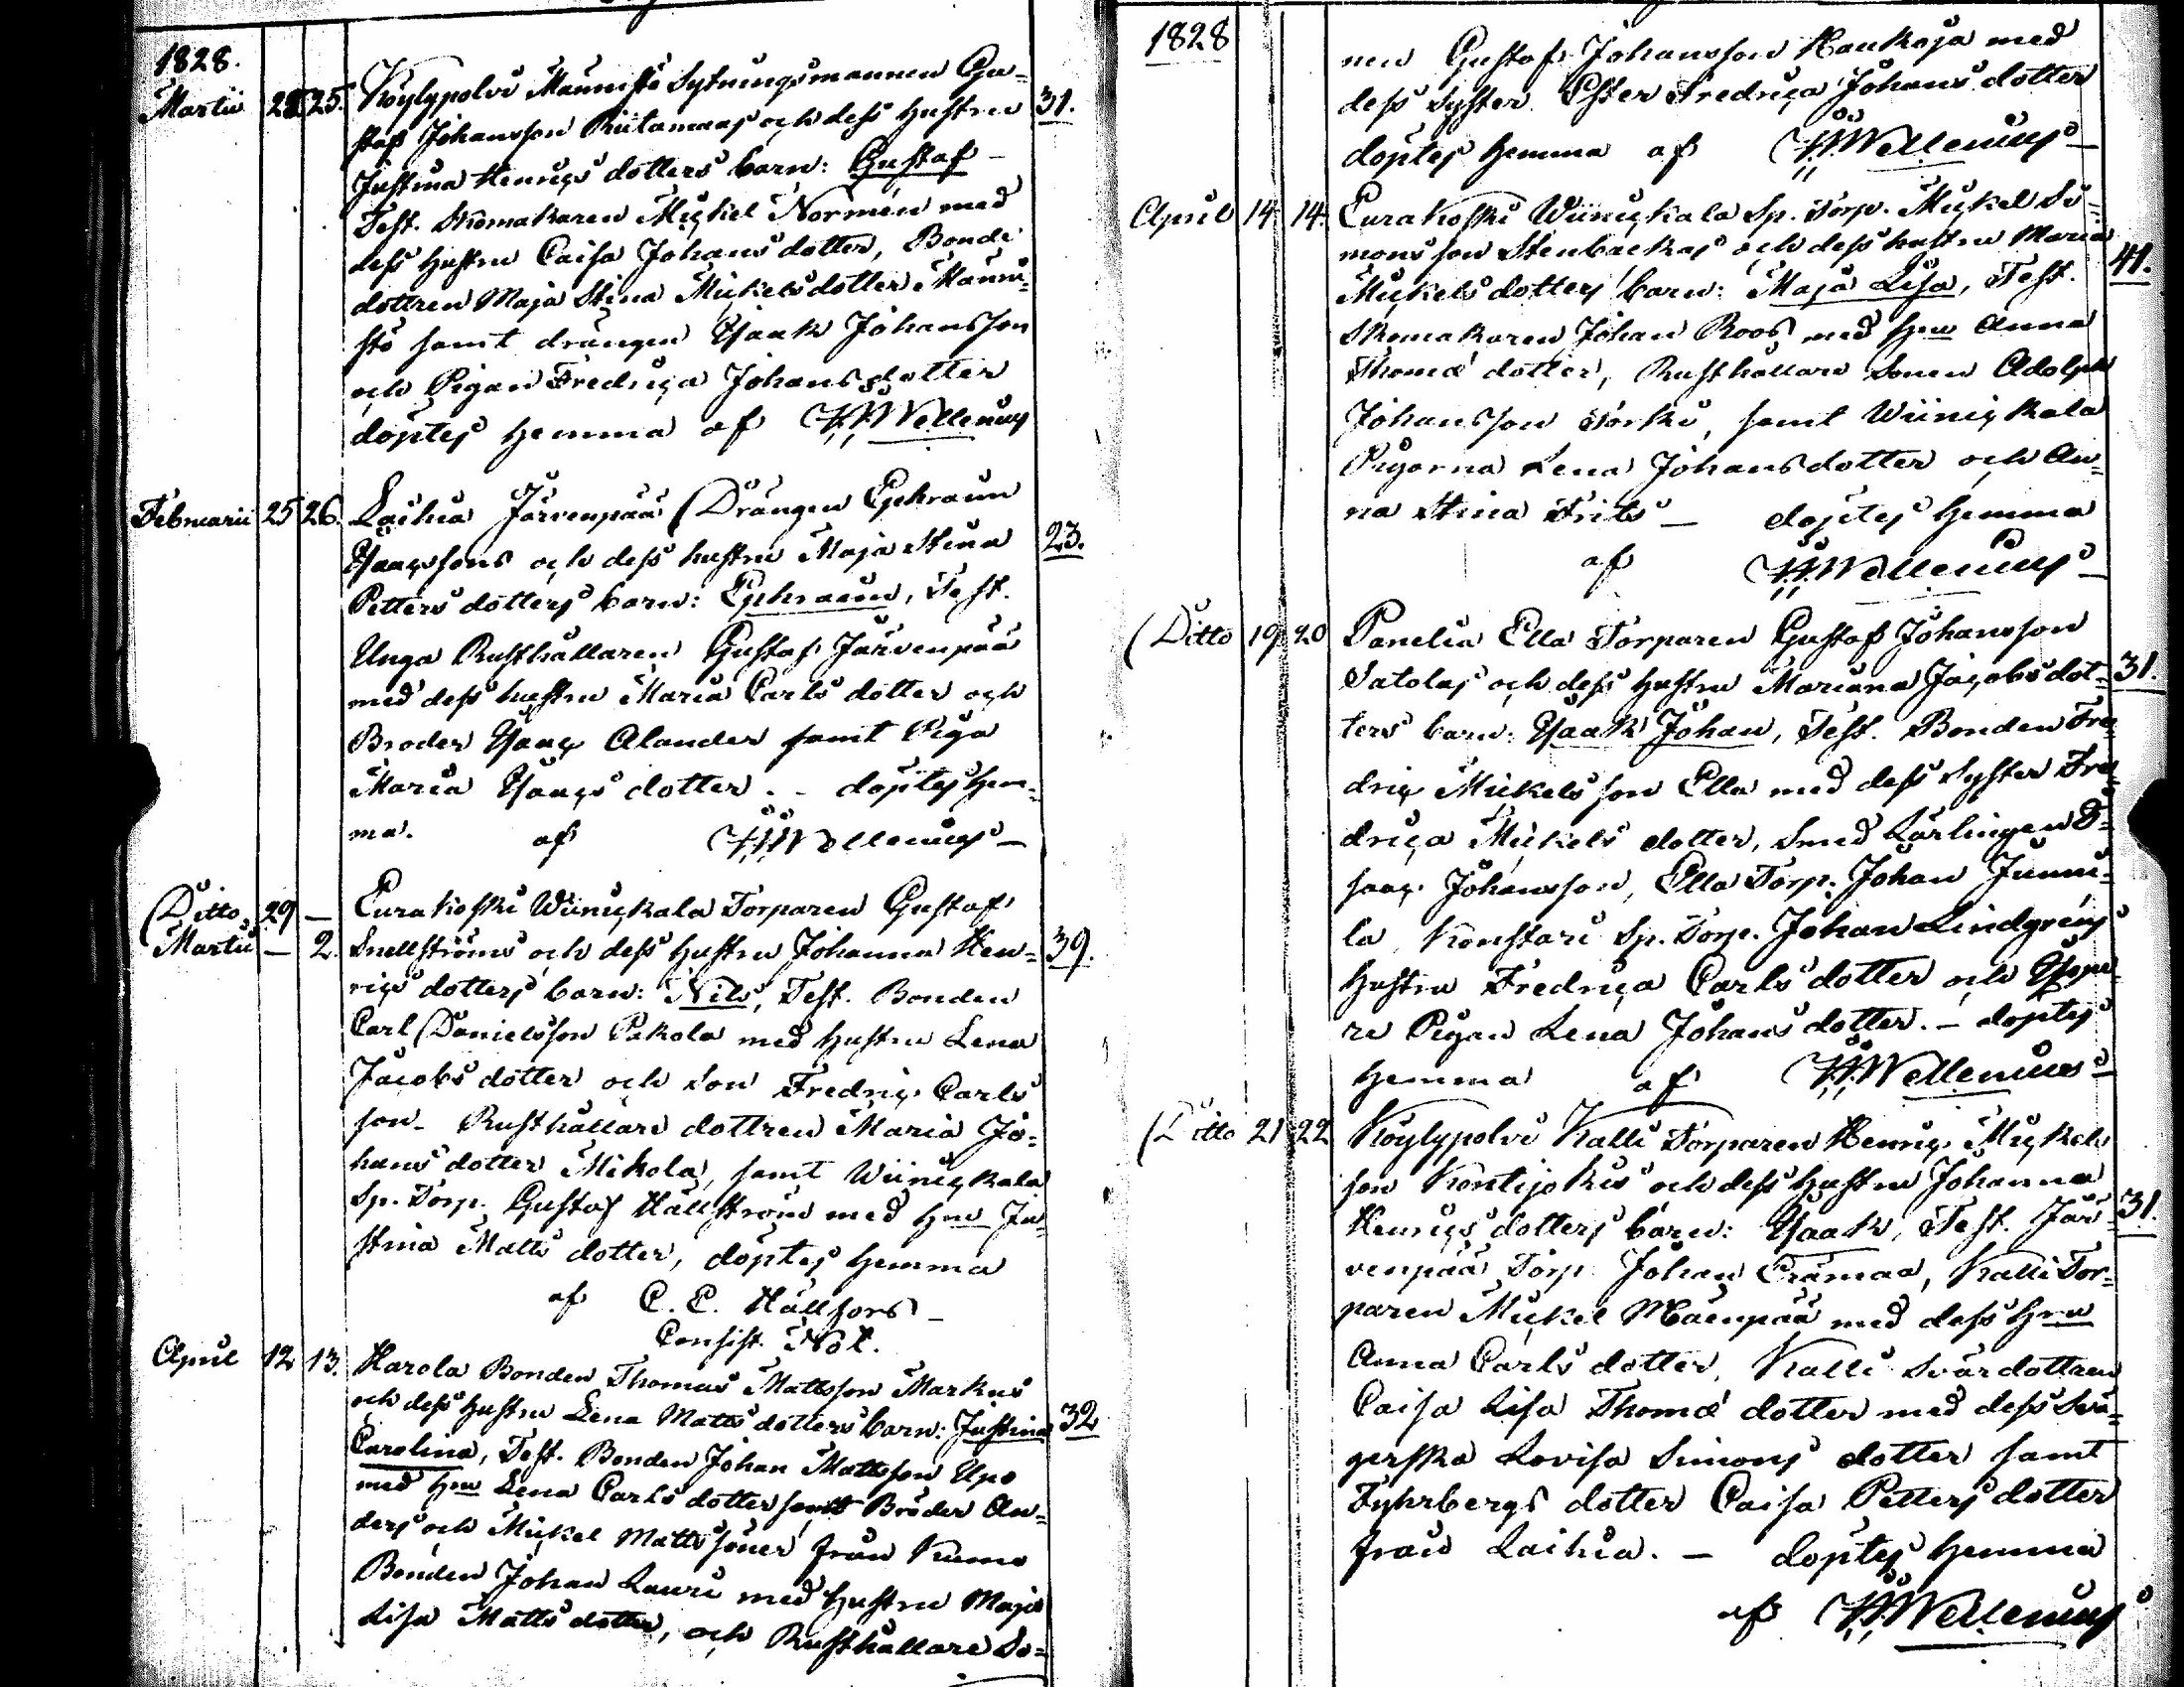 1828.
Martii 25. Köylypolvi Maunisto Sytningsmannen Gu=
staf Johansson Riitamaas och dess hustru 31.
Justina Henrics dotters barn: Gustaf –
Test. Skomakaren Mickel Normén med
dess hustru Caisa Johans dotter, Bonde
dottren Maja Stina Mickelsdotter Mauni=
sto samt drängen Isaak Johansson
och Pigan Fredrica Johansdotter
döptes hemma af Wellenius
Februarii 25 26. Laihia Järvenpää Drängen Ephraim
Isaacssons och dess hustru Maja Stina 23.
Petters dotters barn: Ephraim, Test.
Unga Rusthållaren Gustaf Järvenpää
med dess hustru Maria Carls dotter och
Broder Isaac Alander samt Piga
Maria Isaacs dotter. – döptes hem=
ma. af Wellenius –
Ditto 29 – Eurakoski Wiinickala Torparen Gustaf
Martii – 2. Snellströms och dess hustru Johanna Hen= 39.
rics dotters barn: Nils, Test. Bonden
Carl Danielsson Pakola med hustru Lena
Jacobs dotter och son Fredric Carls
son – Rusthållare dottren Maria Jo=
hans dotter Mikola, samt Wiinickala
Sp. Torp. Gustaf Hällström med hru Ju=
stina Matts dotter, döptes hemma
af C. E. Hällfors –
Consist. Not.
April 12 13. Harola Bonden Thomas Mattsson Markus
och dess hustru Lena Matts dotters barn: Justina 32
Carolina, Test. Bonden Johan Mattsson Upo
med hru Lena Carls dotter samt Bröder An=
ders och Mickel Matts söner från Kumo
Bonden Johan Lauri med hustru Maja
Lisa Matts dotter, och Rusthållare So=
1828
nen Gustaf Johansson Haukoja med
dess syster Ester Fredrica Johans dotter
döptes hemma af Wellenius –
April 14 14. Eurakoski Wiinickala Sp. Torp. Mickel Si=
mons son Stenbackas och dess hustru Maria 41.
Mickels dotters barn: Maja Lisa, Test.
Skomakaren Johan Roos med hru Anna
Thomæ dotter, Rusthållare Sonen Adolph
Johansson Torkki, samt Wiinickala
Pigorna Lena Johansdotter och An=
na Stina Frits – döptes hemma
af Wellenius –
Ditto 19 20 Panelia Ella Torparen Gustaf Johansson
Satolas och dess hustru Mariana Jacobs dot= 31.
ters barn: Isaak Johan, Test. Bonden Fre=
dric Mickels son Ella med dess syster Fre=
drica Mickels dotter, Smed Lärlingen I=
saac Johansson, Ella Torp. Johan Junni=
la, Konstari Sp. Torp. Johan Lindgréns
hustru Fredrica Carls dotter och
re Pigan Lena Johans dotter. – döptes
hemma af Wellenius –
Ditto 21 22 Köylypolvi Kalli Torparen Henric Mickels
son Kontijokis och dess hustru Johanna
Henrics dotters barn: Isaak, Test. Jär= 31.
venpää Torp. Johan Erämaa, Kalli Tor=
paren Mickel Mäenpää med dess hru
Anna Carls dotter, Kalli Svärdottren
Caisa Lisa Thomæ dotter med dess Svä=
gerska Lovisa Simons dotter samt
Fyhrbergs dotter Caisa Petters dotter
från Laihia. – döptes hemma
af Wellenius